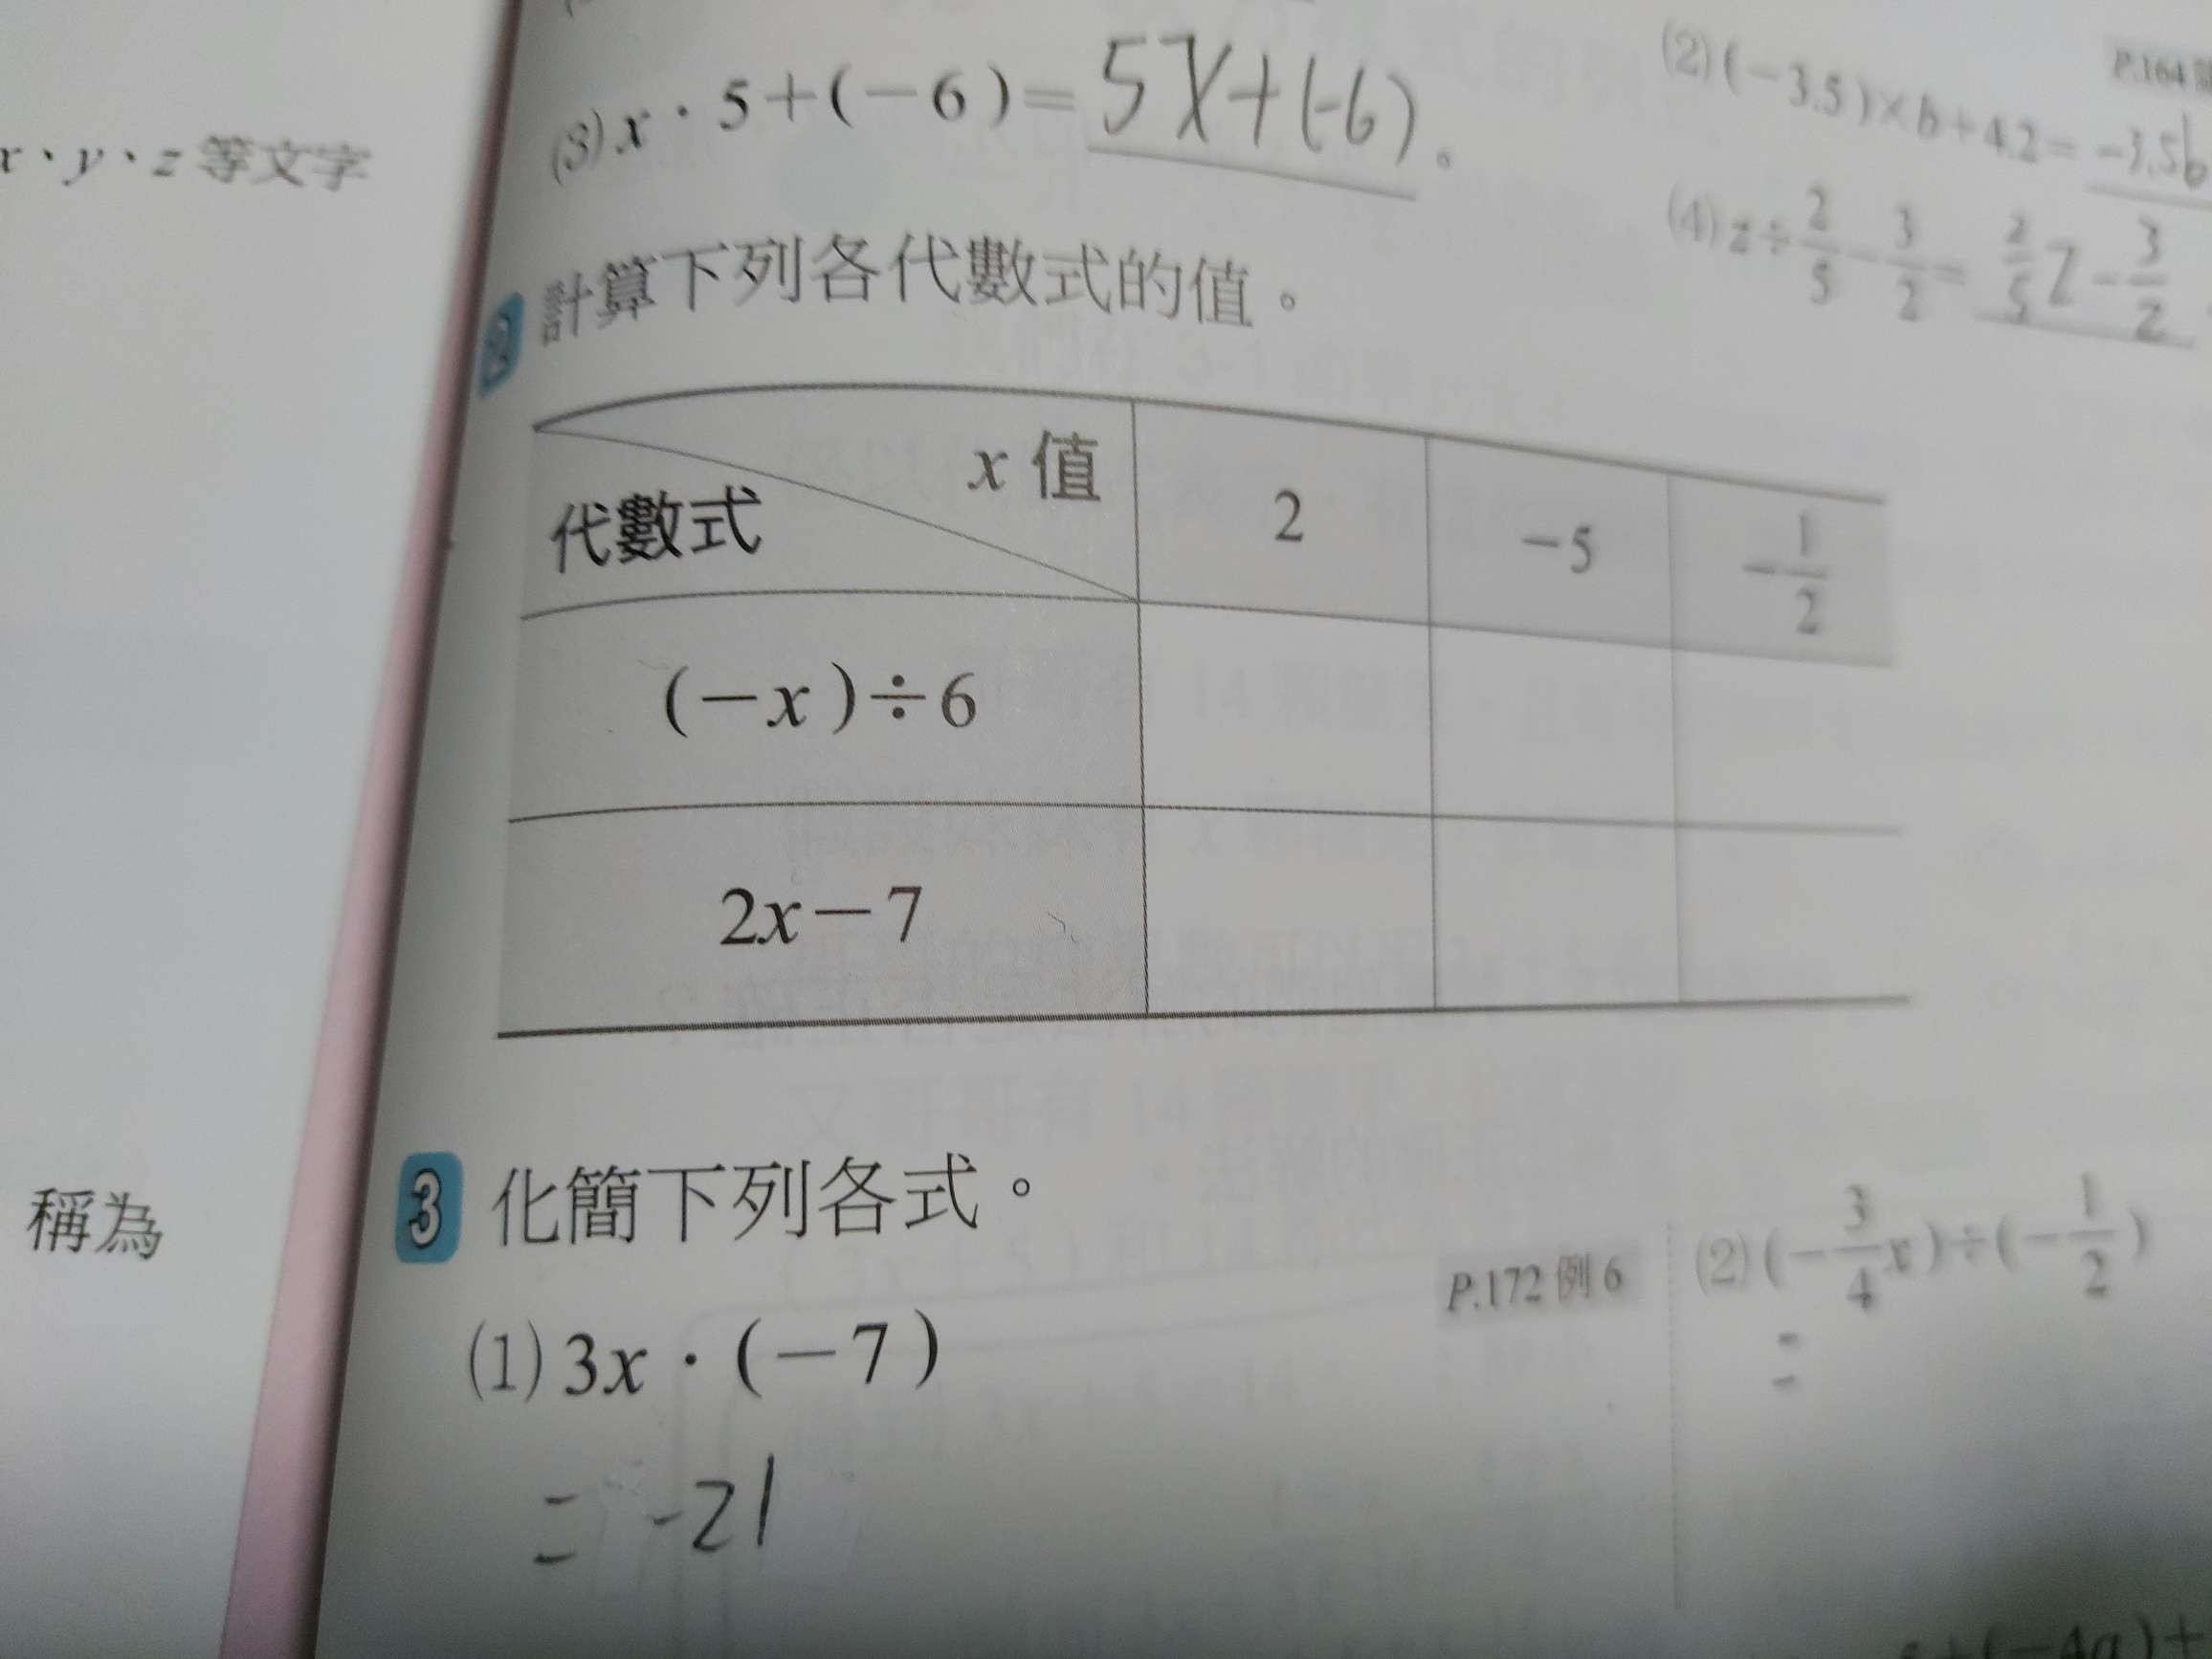 x、y、z 等文字
稱為
(3) x · 5+(-6)= 5x+(-6)。
P.164
(2) (-3.5)×b+4.2= -3.5b
(4) z÷2/5-3/2= 2/5 z-3/2
2 計算下列各代數式的值。
代數式 x 值 2 -5 -1/2
(-x)÷6
2x-7
3 化簡下列各式。
P.172 例 6
(1) 3x · (-7)
= -21
(2) (-3/4 x)÷(-1/2)
=
(-4a)+